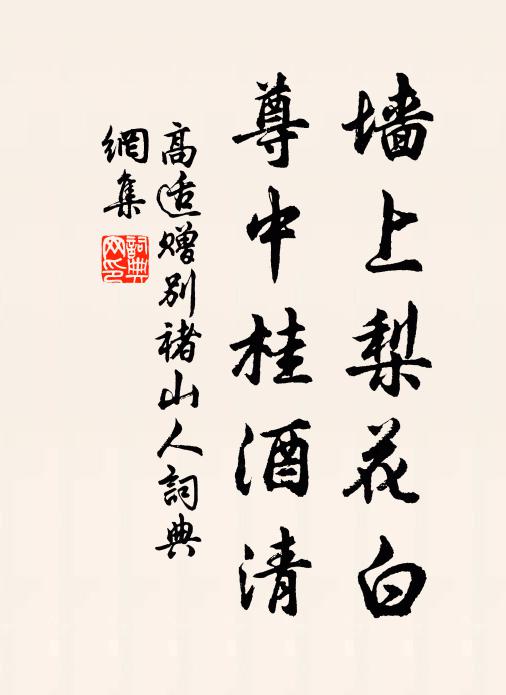 墙上梨花白
尊中桂酒清
高适赠别褚山人词典
網集
詞典网印